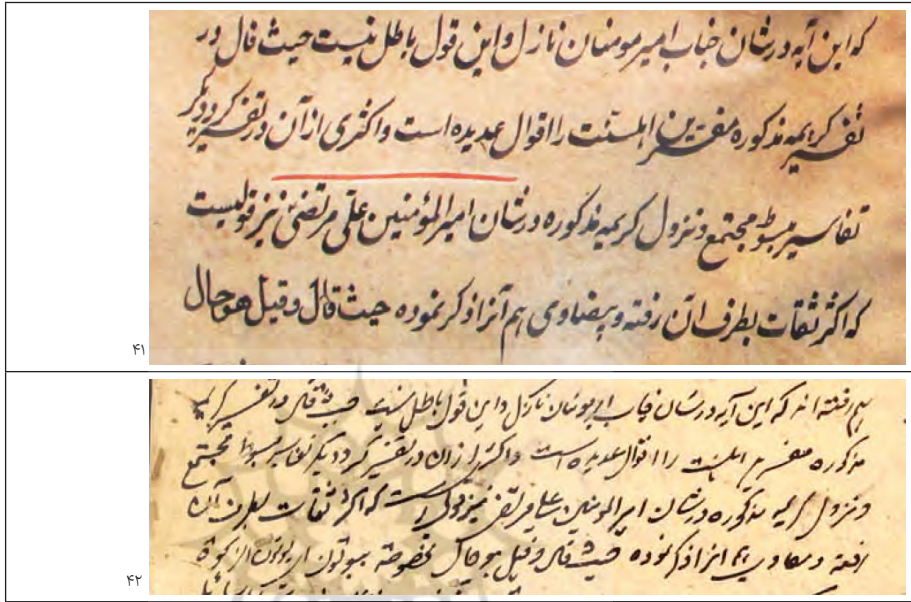 که این آیه در شان جناب امیر مومنان نازل و این قول باطل نیست حیث قال در
تفسیر کریمه مذکوره مفسرین اهلسنت را اقوال عدیده است و اکثری از آن در تفسیر کرد دیگر
تفاسیر مبسوط مجتمع و نزول کریمه مذکوره در شان امیرالمؤمنین علی مرتضی نیز قولیست
که اکثر ثقات بطرف آن رفته و بیضاوی هم آنرا ذکر نموده حیث قال و قیل هو حال
۴۱
هم رفته اند که این آیه در شان جناب امیر مومنان نازل و این قول باطل نیست حیث قال در تفسیر کریمه
مذکوره مفسرین اهلسنت را اقوال عدیده است و اکثر از آن در تفسیر کرد دیگر تفاسیر مبسوط مجتمع
و نزول کریمه مذکوره در شان امیرالمومنین علی مرتضی نیز قولی است که اکثر ثقات بطرف آن
رفته و بیضاوی هم آنرا ذکر نموده حیث قال و قیل هو حال مخصوصة بیوتون
۴۲